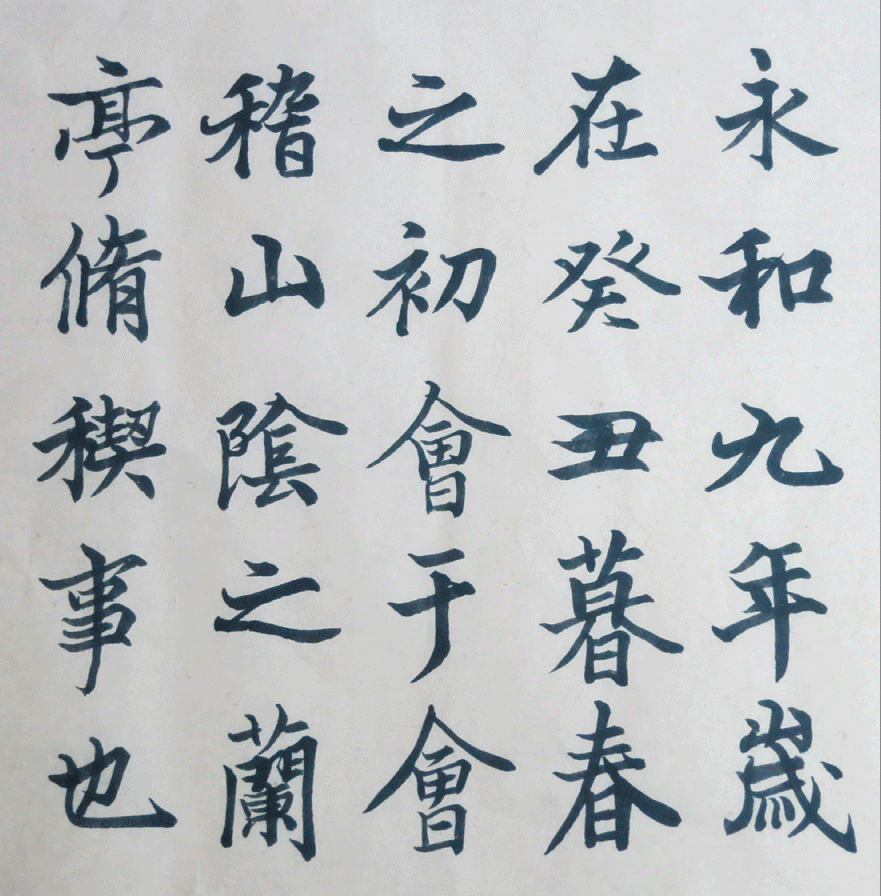 永和九年歲
在癸丑暮春
之初會于會
稽山陰之蘭
亭脩稧事也